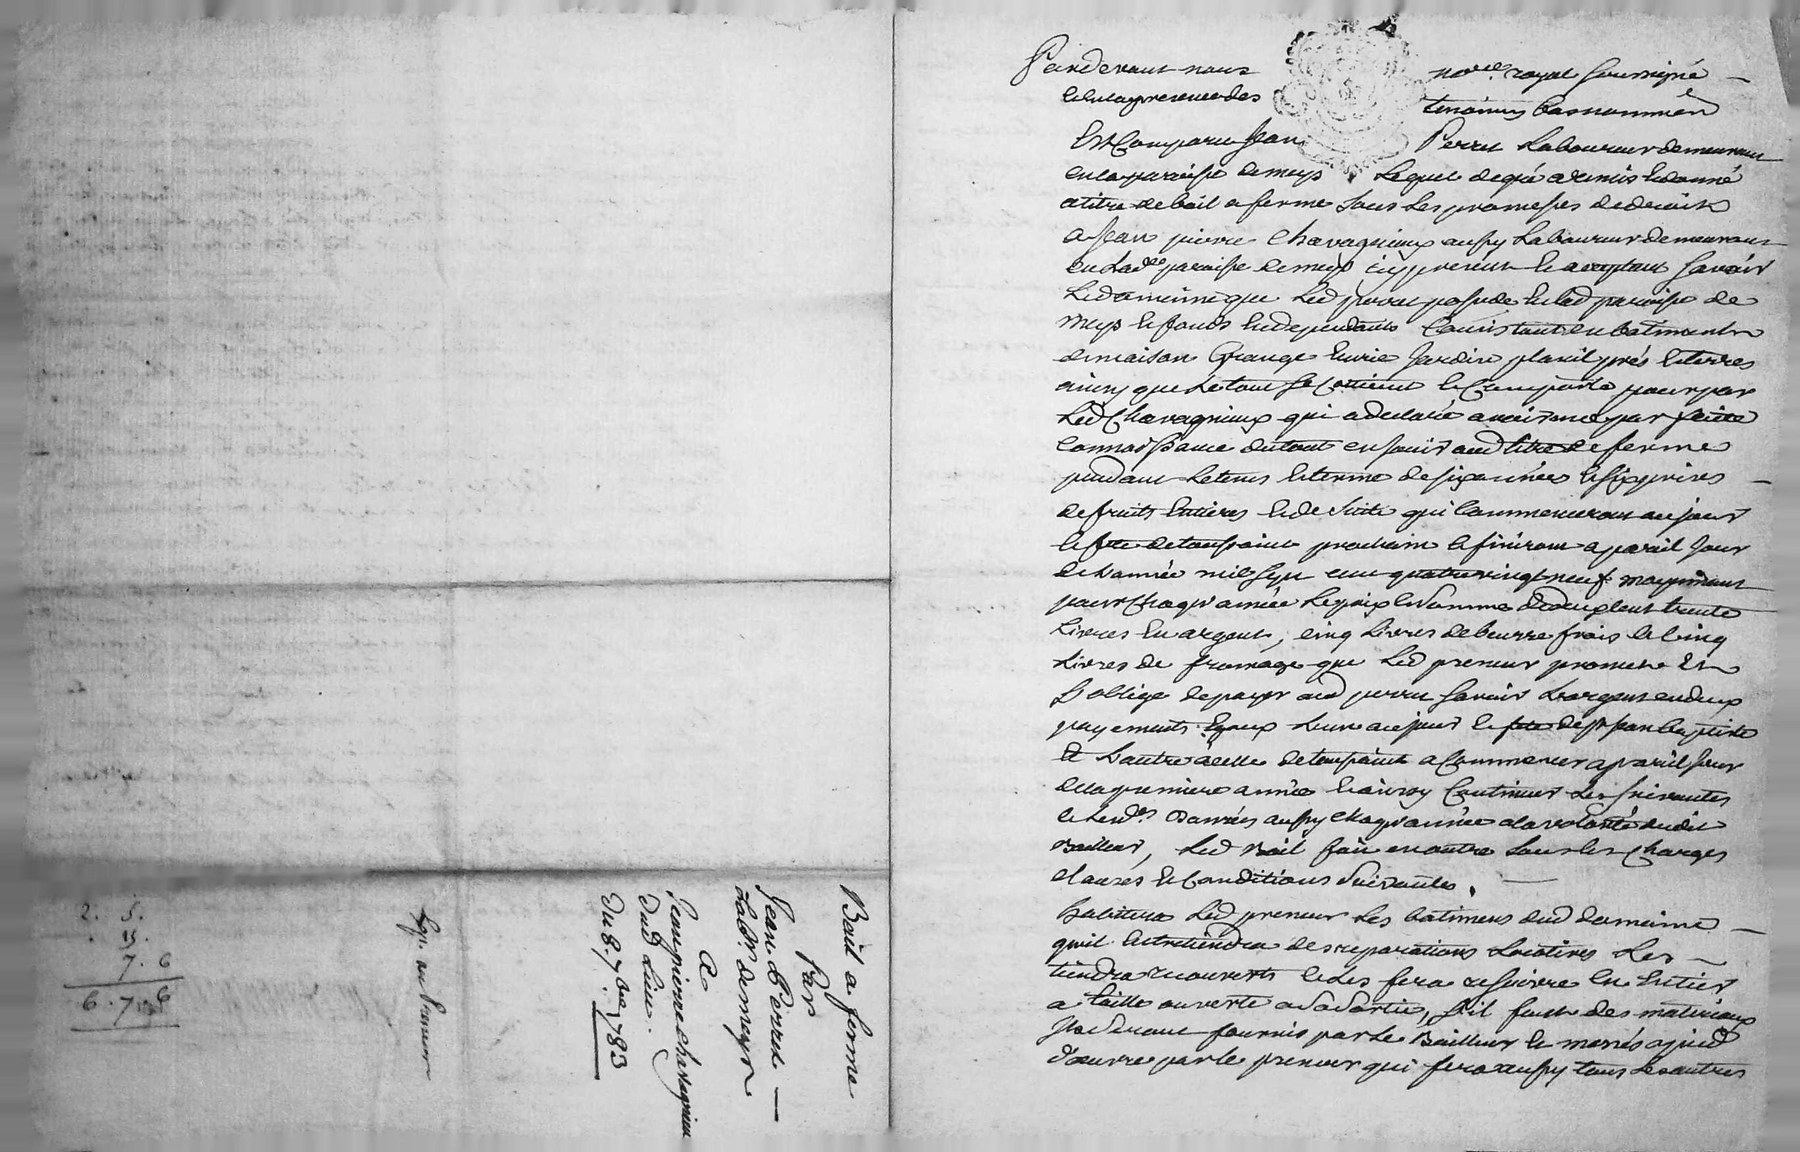 Bail a ferme
Par
Jean Perret
Labr. demeys
A
Jean pierre chavagnieux
dud. Lieu.
du 8. 7bre 1783
Exp. au Preneur
2. 5.
15.
7. 6
6. 7. 6
Pardevant nous notre. royal soussigné
et en la presence des temoins bas nommés
Est Comparu Jean Perret Laboureur demeurant
en la paroisse demeys Lequel de gré a remis et donné
a titre de bail a ferme sous les promesses de droit
a Jean pierre Chavagnieux aussy Laboureur demeurant
en Lade. paroisse demeys icy present et acceptant savoir
Le domaine que Led perret possede en lad paroisse de
meys et fonds en dependants Consistant en batiments
de maison Grange Ecurie Jardin plasil prés et terres
ainsy que Le tout se Contient et Comporte pour par
Led Chavagnieux qui a declaré avoir
connoissance du tout en jouir aud titre de ferme
pendant Le tems et terme de six années et six prises
de fruits Entieres et de suitte qui Commenceront au jour
et fete de toussaint prochain et finiront a pareil jour
de L'année mil sept cent quatrevingt neuf moyennant
pour Chaqu'année Le prix et somme de deux cent trente
Livres En argent, cinq Livres de beurre frais et Cinq
Livres de fromage que Led preneur promet et
s'oblige de payer aud perret savoir L'argent en deux
payements Egaux L'un au jour et fete de st jean baptiste
et L'autre a celle de toussaint a Commencer a pareil jour
de la premiere année et ainsy Continuer Les suivantes
et Lesd. danrées aussy chaqu'année a la volonté dudit
Bailleur, Led Bail fait en outre sous les Charges
clauses et Conditions suivantes.
habitera Led preneur Les batimens dud domaine
qu'il Entretiendra des reparations Locatives Les
tiendra recouverts et Les fera resuivre En Entier
a taille ouverte a sa sortie, s'il faut des materiaux
ils seront fournis par Le Bailleur et menés a pied
d'œuvre par le preneur qui fera aussy tous Les autres